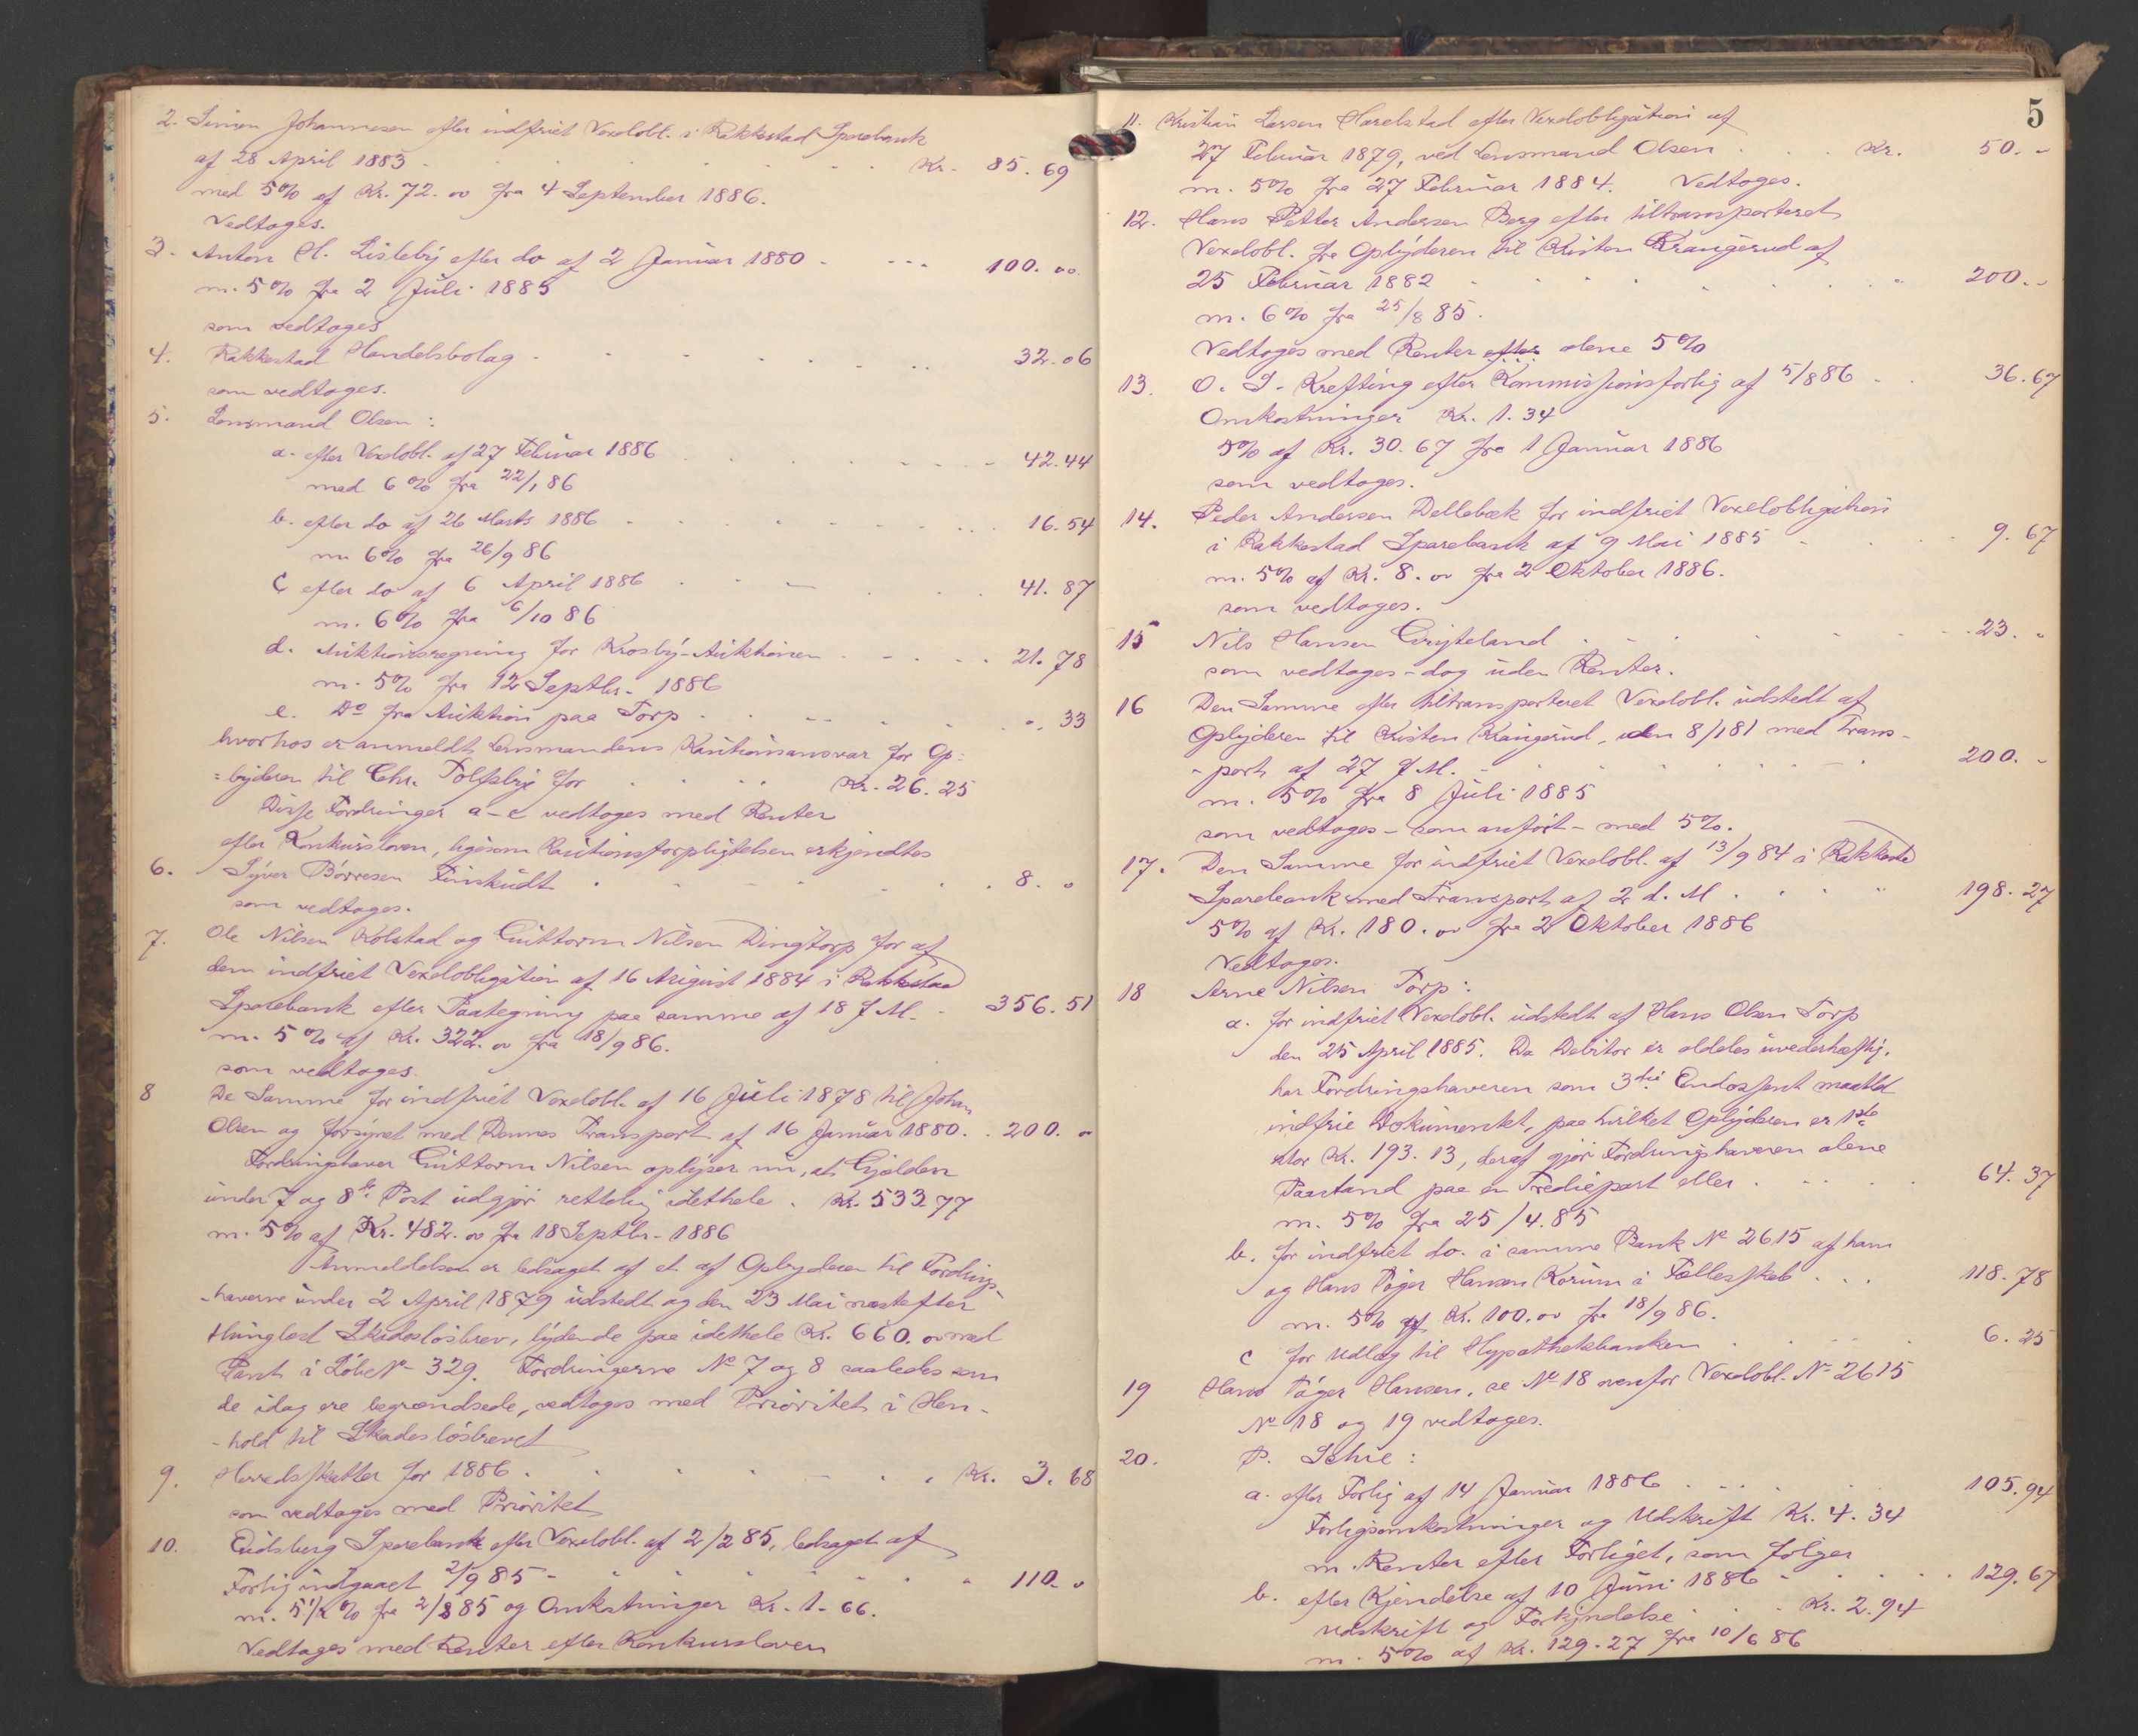 2. Simen Johannesen efter indfriet Vexelobl. i Rakkestad Sparebank
af 28 April 1883 . . . . . . Kr. 85. 69
med 5% af Kr. 72. oo fra 4 September 1886.
Vedtages.
3. Anton H. Lisleby efter do af 2 Januar 1880 . . . . 100. oo
m. 5% fra 2 Juli 1885
som vedtages
4. Rakkestad Handelsbolag . . . . . . 32. 06
som vedtages.
5. Lensmand Olsen :
a. efter Vexelobl. af 27 Februar 1886 . . . . 42. 44
med 6% fra 22/1 86
b. efter do af 26 Marts 1886 . . . . 16. 54
m 6% fra 26/9 86
c efter do af 6 April 1886 . . . . 41. 87
m. 6% fra 6/10 86
d. Auktionsregning for Krosby-Auktionen . . . . 21. 78
m. 5% fra 12 Septbr. 1886
e. Do fra Auktion paa Torp . . . . ". 33
hvorhos er anmeldt Lensmandens Kautionsansvar for Op-
=byderen til Chr. Tolfsby for . . . . Kr. 26. 25
Disse Fordringer a-e vedtages med Renter
efter Konkursloven, ligesom Kautionsforpligtelsen erkjendtes
6. Syver Börresen Finskudt . . . . 8. o
som vedtages.
7. Ole Nilsen Kolstad og Guttorm Nilsen Dingtorp for af
dem indfriet Vexelobligation af 16 August 1884 i Rakkestad
Sparebank efter Paategning paa samme af 18 f. M. - 356. 51
m. 5% af Kr. 322. oo fra 18/9 86.
som vedtages.
8 De Samme for indfriet Vexelobl. af 16 Juli 1878 til Johan
Olsen og forsynet med Dennes Transport af 16 Januar 1880. . 200. o
Fordringshaver Guttorm Nilsen oplyser nu, at Gjælden
under 7 og 8de Post udgjør rettelig idethele . Kr. 533 77
m. 5% af Kr. 482. oo fra 18 Septbr. 1886
Anmeldelsen er ledsaget af et af Opbyderen til Fordrings-
-haverne under 2 April 1879 udstedt og den 23 Mai næstefter
thinglæst Skadeslösbrev, lydende paa idethele Kr. 660. oo med
Pant i Löbe No 329. Fordringerne No 7 og 8 saaledes som
de idag ere begrændsede, vedtages med Prioritet i Hen-
-hold til Skadeslösbrevet
9. Herredsskatter for 1886 . . . . Kr. 3. 68
som vedtages med Prioritet
10. Eidsberg Sparebank efter Vexelobl. af 2/2 85, ledsaget af
Forlig indgaaet 2/9 85 - . . . . 110. o
m. 5½% fra 2/8 85 og Omkostninger Kr. 1. 66.
Vedtages med Renter efter Konkursloven
5
11. Kristian Larsen Harelstad efter Vexelobligation af
27 Februar 1879, ved Lensmand Olsen . . . Kr. 50. -
m. 5% fra 27 Februar 1884. Vedtages.
12. Hans Petter Andersen Berg efter tiltransporteret
Vexelobl. fra Opbyderen til Kristen Krangerud af
25 Februar 1882 . . . . 200. -
m. 6% fra 25/8 85.
Vedtages med Renter efter alene 5%
13. O. S. Krefting efter Kommissionsforlig af 5/8 86 . . 36. 67
Omkostninger Kr. 1. 34
5% af Kr. 30. 67 fra 1 Januar 1886
som vedtages.
14. Peder Andersen Dellebæk for indfriet Vexelobligation
i Rakkestad Sparebank af 9 Mai 1885 . . . 9. 67
m. 5% af Kr. 8. oo fra 2 Oktober 1886.
som vedtages.
15 Nils Hansen Gryteland . . . . 23. "
som vedtages - dog uden Renter.
16 Den Samme efter tiltransporteret Vexelobl. udstedt af
Opbyderen til Kristen Krangerud, den 8/1 81 med Trans-
-port af 27 f. M. - . . . . 200. -
m. 5% fra 8 Juli 1885
som vedtages - som anfört - med 5%.
17. Den Samme for indfriet Vexelobl. af 13/9 84 i Rakkestad
Sparebank med Transport af 2 d. M. . . . 198. 27
5% af Kr. 180. oo fra 2 Oktober 1886
Vedtages.
18 Arne Nilsen Torp :
a. for indfriet Vexelobl. udstedt af Hans Olsen Torp
den 25 April 1885. Da Debitor er aldeles uvederhæftig,
har Fordringshaveren som 3die Endossent maattet
indfrie Dokumentet, paa hvilket Opbyderen er 1ste
stor Kr. 193. 13, deraf gjör Fordringshaveren alene
Paastand paa en Trediepart eller . . . . 64. 37
m. 5% fra 25/4. 85
b. for indfriet do. i samme Bank No 2615 af ham
og Hans Päger Hansen Korum i Fællesskab . . . 118. 78
m. 5% af Kr. 100. oo fra 18/9 86.
c for Udlæg til Hypothekbanken . . . . 6. 25
19 Hans Päger Hansen, se No 18 ovenfor Vexelobl. No 2615
No 18 og 19 vedtages.
20. P. Schie :
a. efter Forlig af 14 Januar 1886 . . . . 105. 94
Forligsomkostninger og Udskrift Kr. 4. 34
m. Renter efter Forliget, som fölger
b. efter Kjendelse af 10 Juni 1886 . . . . 129. 67
Udskrift og Forkyndelse . . . Kr. 2. 94
m. 5% af Kr. 129. 27 fra 10/6 86